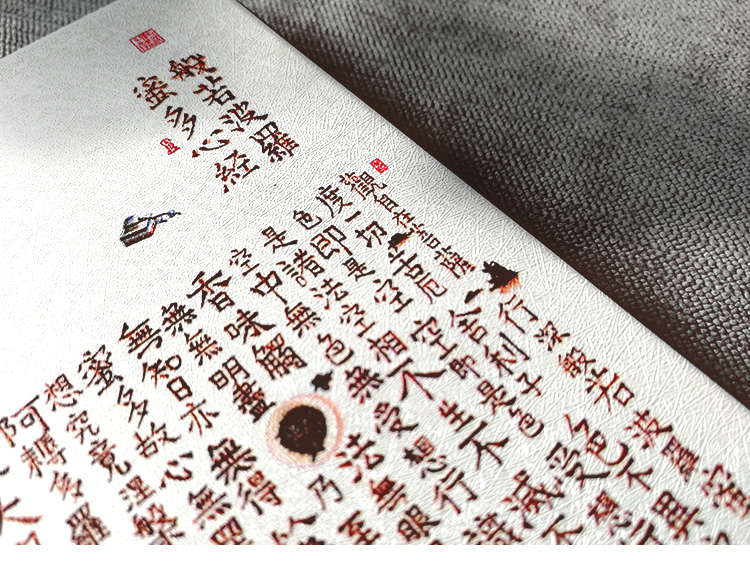 般若波羅
蜜多心経
觀自在菩薩行深般若波羅蜜
度一切苦厄舍利子色不異
色即是空空即是色受想行
是諸法空相不生不滅不
空中無色無受想行識
香味觸法無眼
無無明盡乃至
無智亦無得
蜜多故心無罣
想究竟涅槃
阿耨多羅